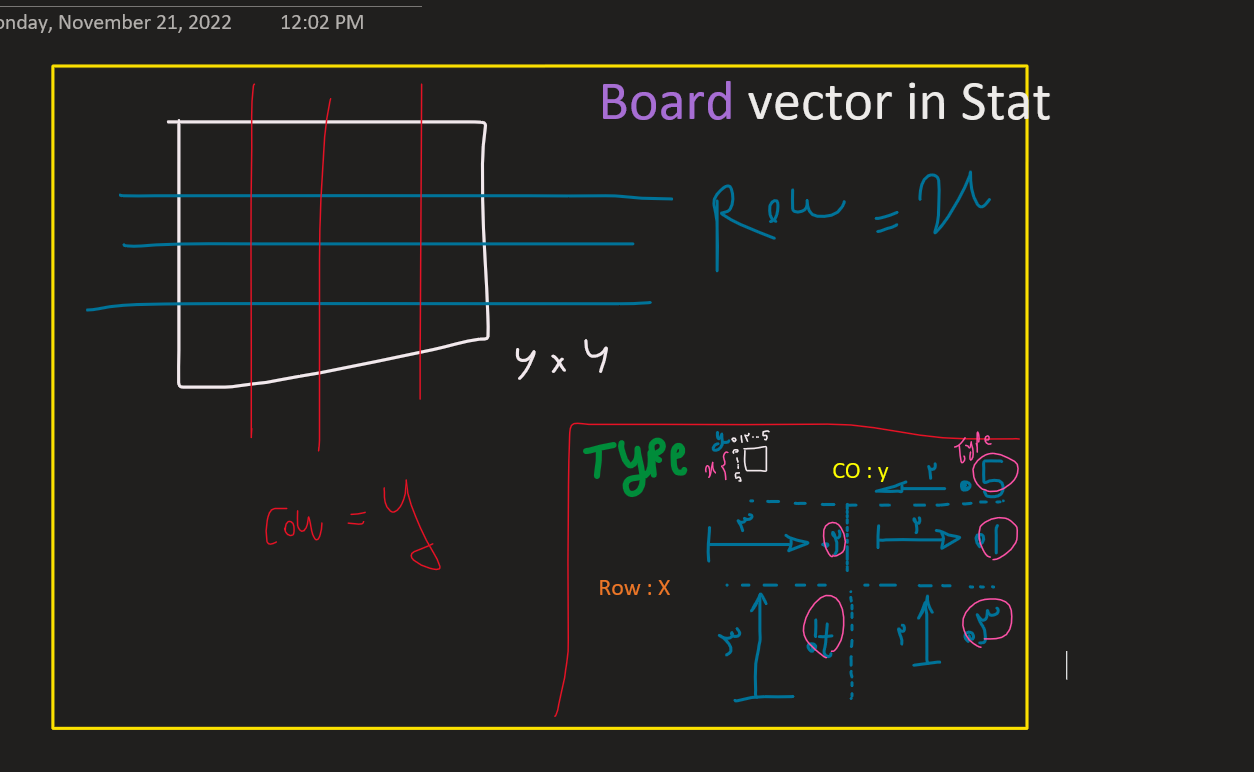 onday, November 21, 2022 12:02 PM
Board vector in Stat
Row = x
y x y
TYPE
y 0 1 2 .. 5
x { 0
5
CO : y
۲
Type
.5
۳
.۲
۲
.1
Row : X
۳
.4
۲
.۳
= y